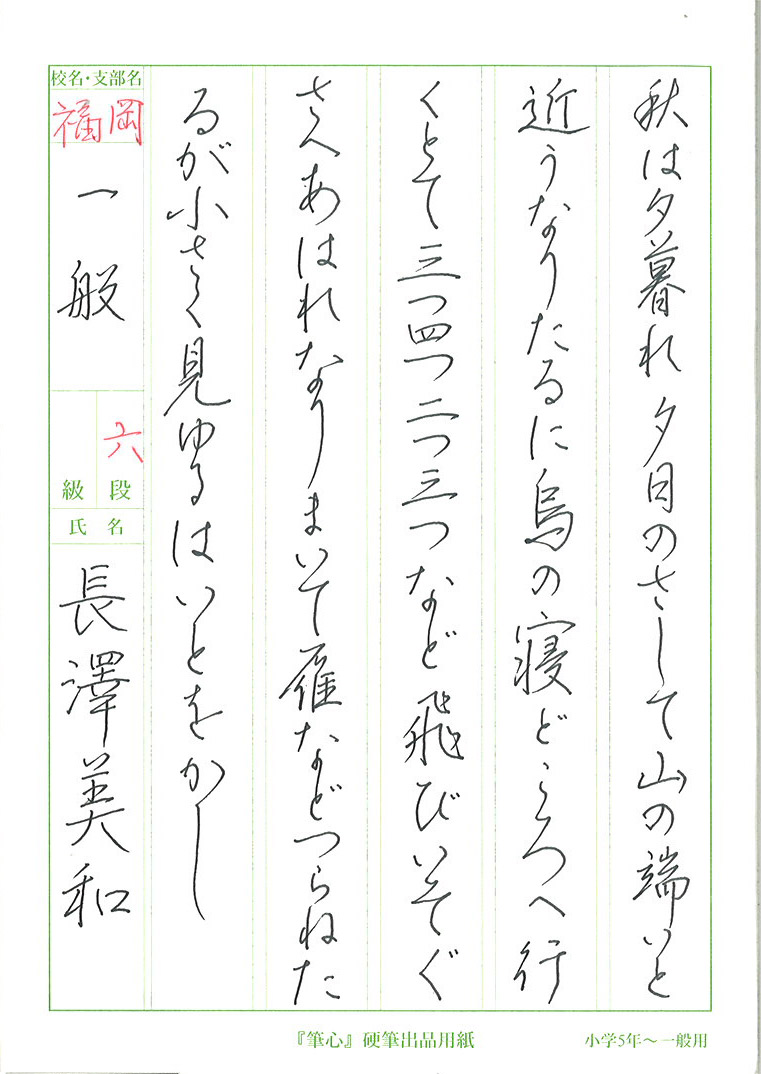 秋は夕暮れ 夕日のさして山の端いと
近うなりたるに烏の寝どころへ行
くとて三つ四つ二つ三つなど飛びいそぐ
さへあはれなりまいて雁などつらねた
るが小さく見ゆるはいとをかし
校名・支部名
福岡
一般
六
級 段
氏 名
長澤美和
『筆心』硬筆出品用紙
小学5年〜一般用